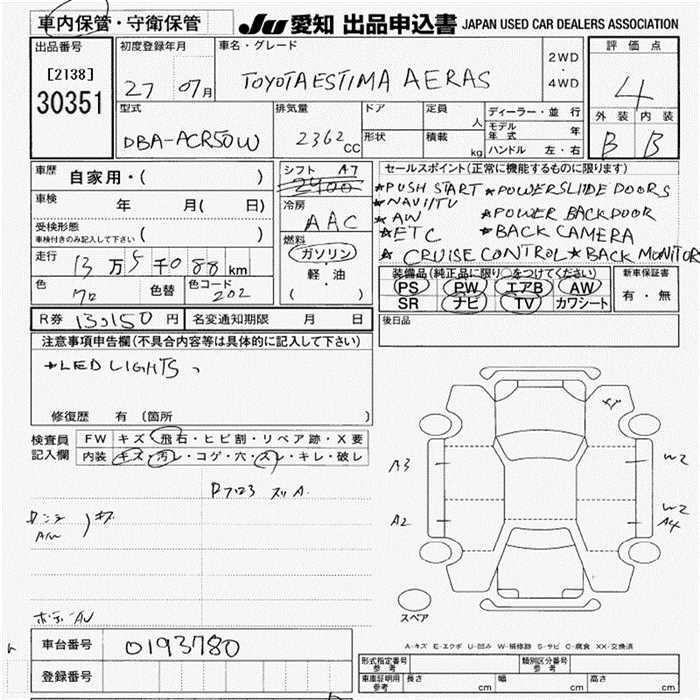 車内保管・守衛保管 JU 愛知 出品申込書 JAPAN USED CAR DEALERS ASSOCIATION
出品番号 初度登録年月 車名・グレード 評価点
[2138] 27 07月 TOYOTA ESTIMA AERAS 2WD ・ 4WD 4
30351 外装 内装
型式 排気量 ドア 定員 人 ディーラー・並行 B B
DBA-ACR50W 2362CC 形状 積載 kg モデル年式 年
ハンドル 左・右
車歴 自家用・( ) シフト A7 セールスポイント(正常に機能するものに限ります)
2400
車検 年 月( 日) 冷房 AAC
★PUSH START ★POWERSLIDE DOORS
★NAVI/TV
★AW ★POWER BACKDOOR
★ETC ★BACK CAMERA
★CRUISE CONTROL ★BACK MONITOR
受検形態
車検付きのみ記入して下さい ( )
燃料 ガソリン ・ 軽・油 ( )
走行 13万5千088km
色 クロ 色替 色コード 202
装備品(純正品に限り○をつけてください) 新車保証書
PS PW エアB AW 有・無
SR ナビ TV カワシート
R券 13,150円 名変通知期限 月 日 後日品
注意事項申告欄(不具合内容等は具体的に記入して下さい)
★LED LIGHTS
修復歴 有(箇所 )
検査員記入欄 FW キズ・飛石・ヒビ割・リペア跡・X要
内装 キズ・汚レ・コゲ・穴・スレ・キレ・破レ
スリA
キズ
A/W
A3 W2
A2 W2
A4
スペア
車台番号 0193780
A-キズ E-エクボ U-凹み W-補修跡 S-サビ C-腐食 XX-交換済
登録番号
形式指定番号 参考 類別区分番号 参考
車庫証明用 参考 長さ cm 幅 cm 高さ cm